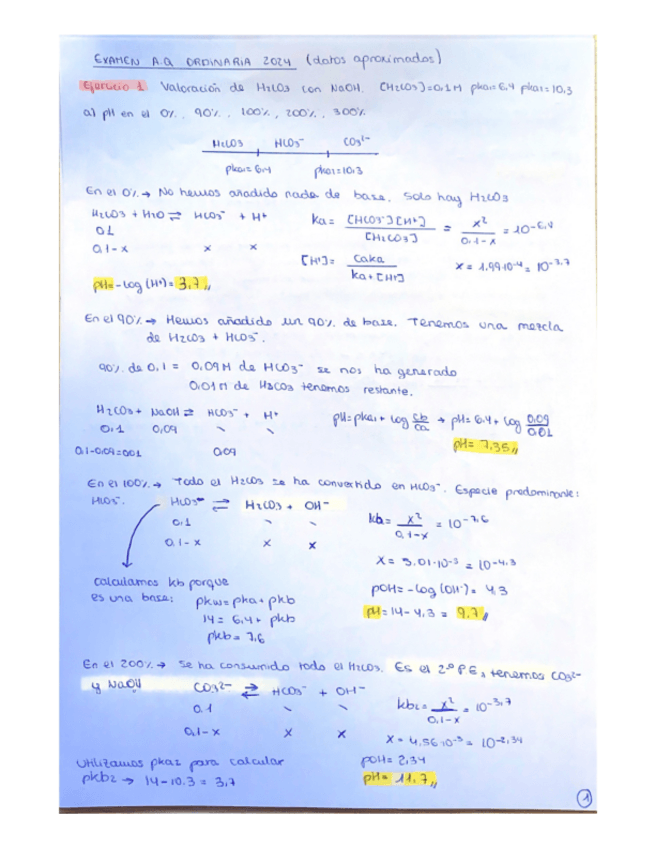 EXAMEN A.Q ORDINARIA 2024 (datos aproximados)
Ejercicio 1 Valoración de H2CO3 con NaOH. [H2CO3]=0,1M pka1=6,4 pka2=10,3
a) pH en el 0%, 90%, 100%, 200%, 300%
H2CO3 HCO3⁻ CO3²⁻
pka1=6,4 pka2=10,3
En el 0% → No hemos añadido nada de base. Solo hay H2CO3
H2CO3 + H2O ⇌ HCO3⁻ + H⁺ Ka = [HCO3⁻][H⁺] / [H2CO3] = x² / 0,1-x = 10^-6,4
0,1
0,1-x x x [H⁺] = Caka / Ka+[H⁺] x = 1,99·10⁻⁴ = 10^-3,7
pH = -log (H⁺) = 3,7
En el 90% → Hemos añadido un 90% de base. Tenemos una mezcla
de H2CO3 + HCO3⁻.
90% de 0,1 = 0,09M de HCO3⁻ se nos ha generado
0,01M de H2CO3 tenemos restante.
H2CO3 + NaOH ⇌ HCO3⁻ + H⁺ pH = pka1 + log Cb/Ca → pH = 6,4 + log 0,09/0,01
0,1 0,09 - - pH = 7,35
0,1-0,09=0,01 0,09
En el 100% → Todo el H2CO3 se ha convertido en HCO3⁻. Especie predominante:
HCO3⁻. HCO3⁻ ⇌ H2CO3 + OH⁻ Kb = x² / 0,1-x = 10^-7,6
0,1 - -
0,1-x x x
x = 5,01·10⁻⁵ = 10^-4,3
Calculamos kb porque pOH = -log (OH⁻) = 4,3
es una base: pkw = pka + pkb pH = 14 - 4,3 = 9,7
14 = 6,4 + pkb
pkb = 7,6
En el 200% → Se ha consumido todo el H2CO3. Es el 2º PE, tenemos CO3²⁻
y NaOH CO3²⁻ ⇌ HCO3⁻ + OH⁻ kb2 = x² / 0,1-x = 10^-3,7
0,1 - -
0,1-x x x x = 4,56·10⁻³ = 10^-2,34
Utilizamos pka2 para calcular pOH = 2,34
pkb2 → 14-10,3 = 3,7 pH = 11,7
1